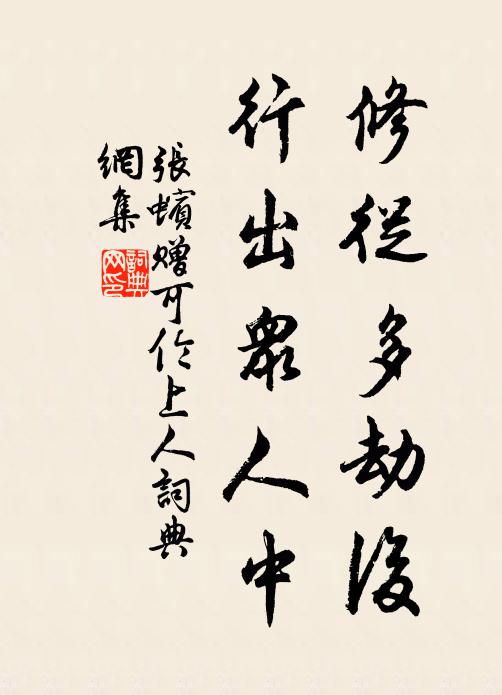 修從多劫後
行出眾人中
張蠙贈可伦上人詞典
網集
詞典网印